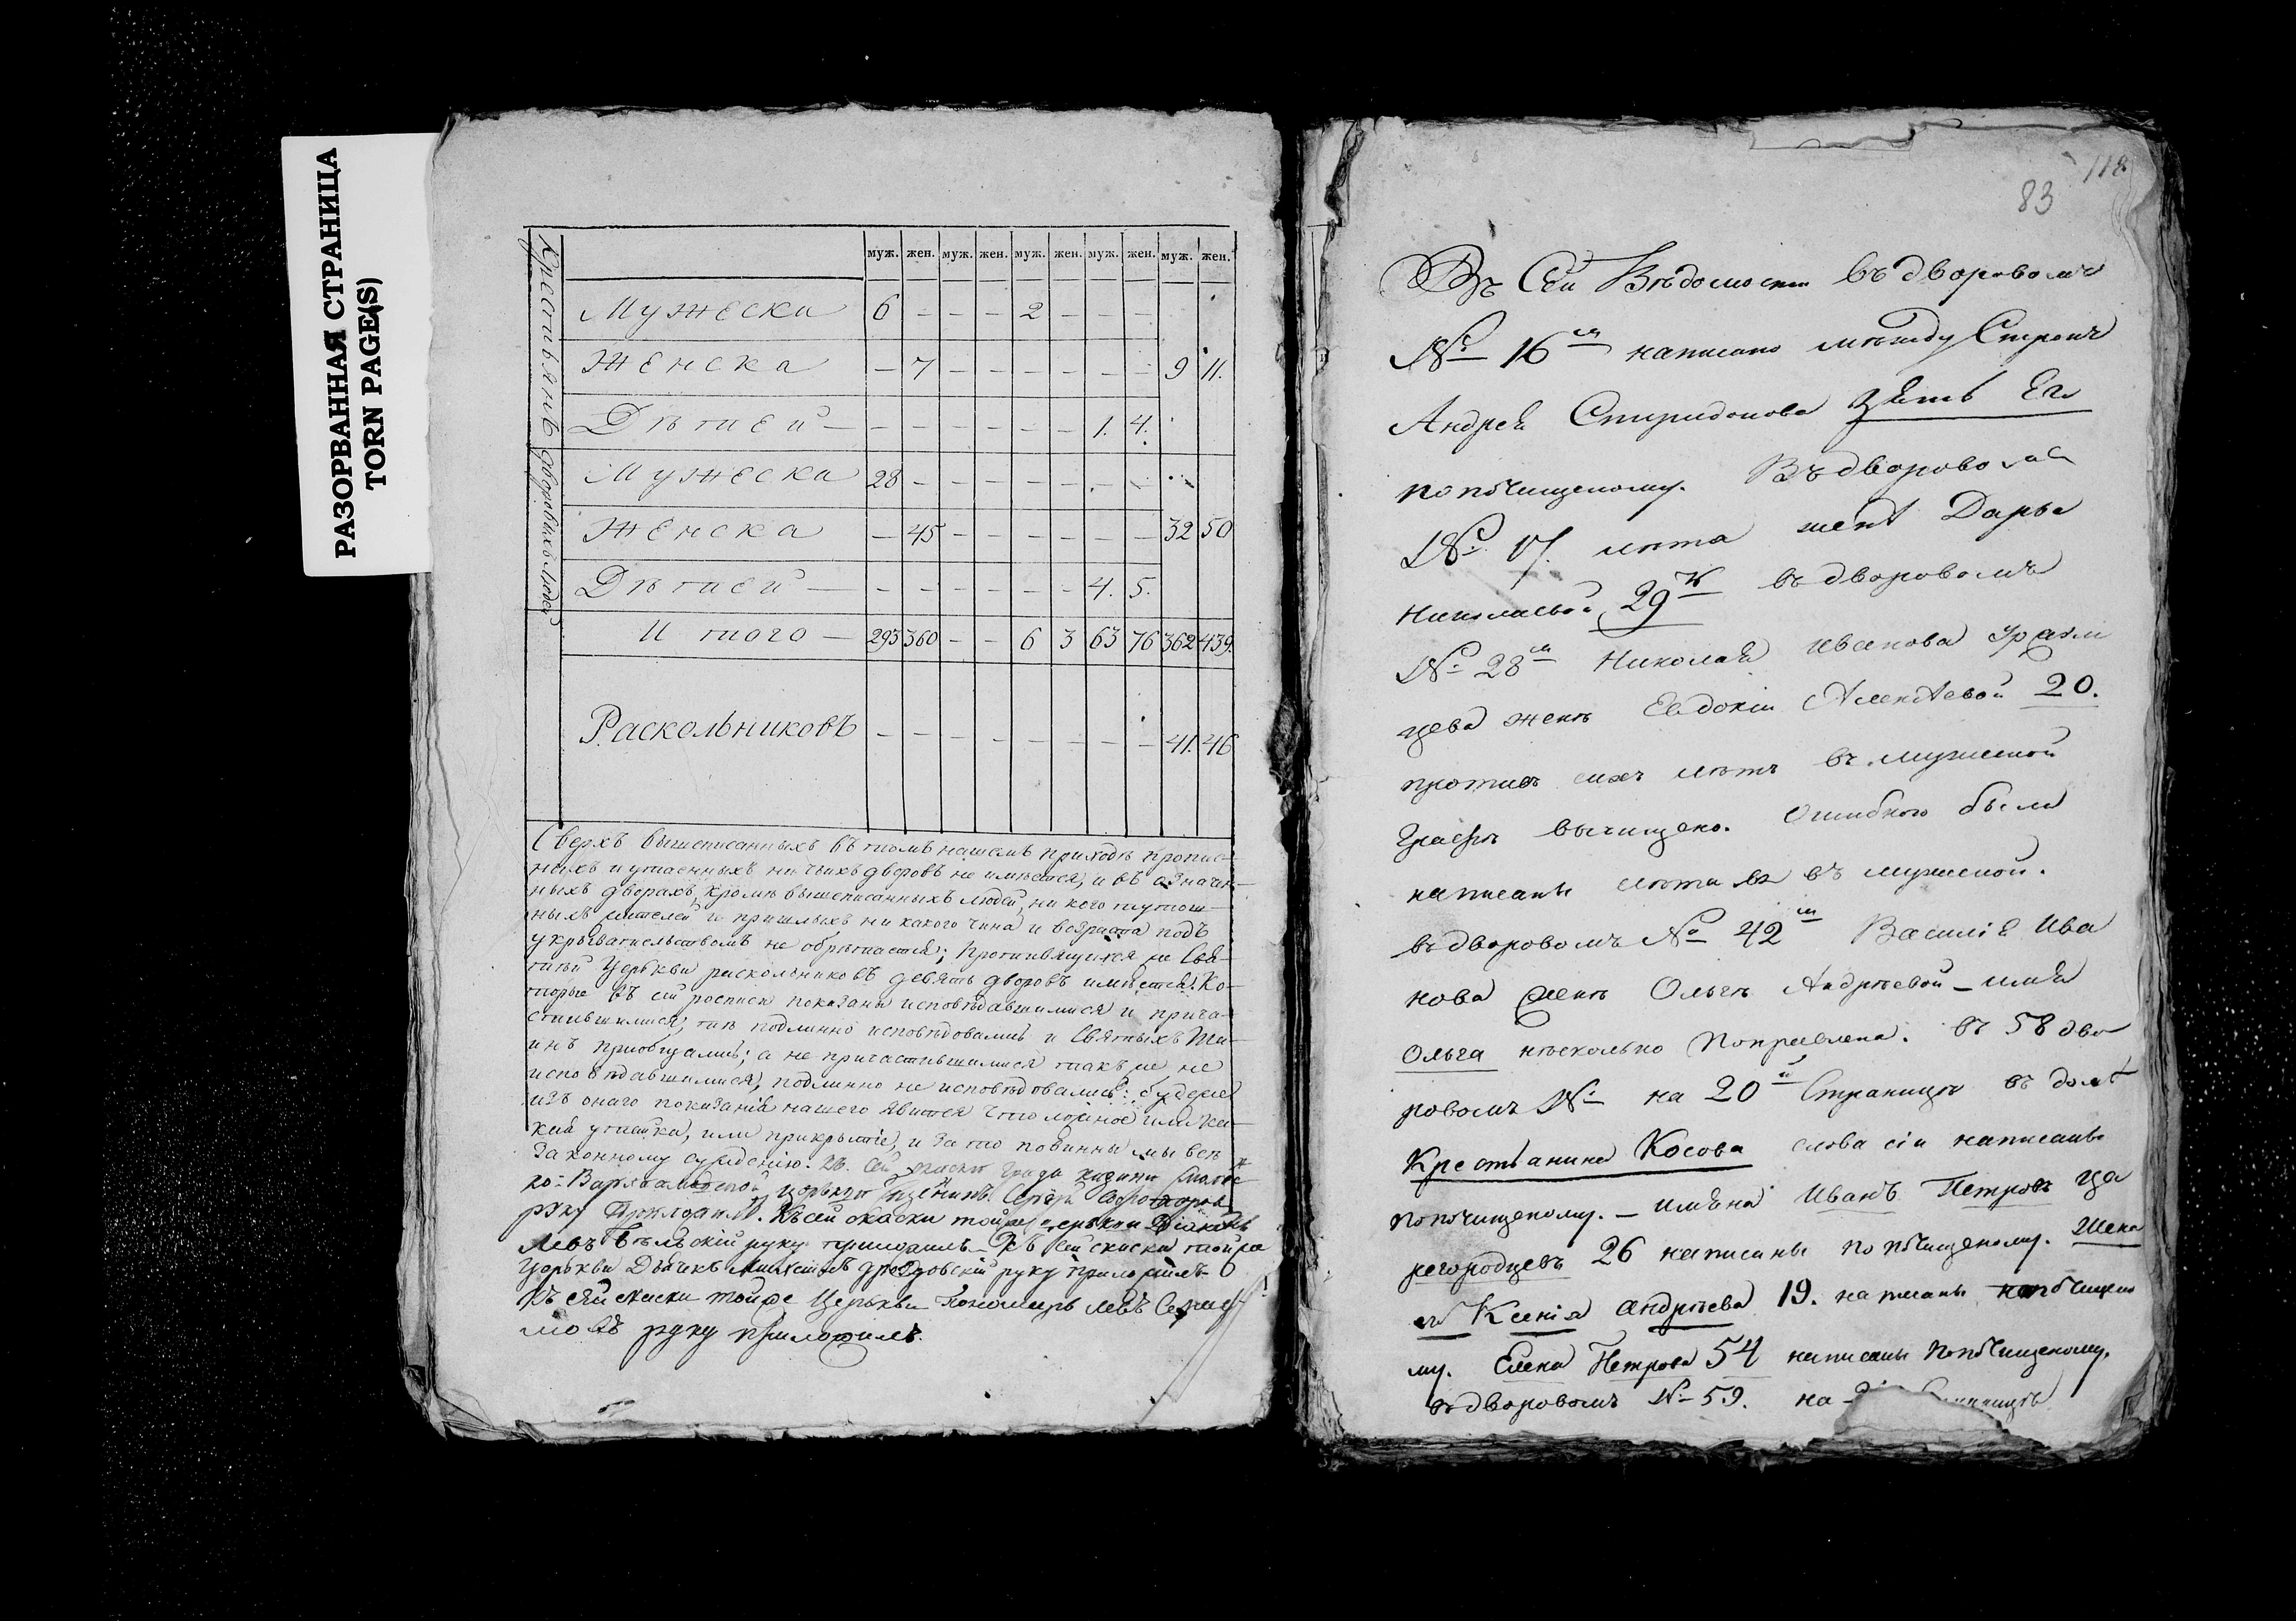 РАЗОРВАННАЯ СТРАНИЦА
TORN PAGE(S)
Крестьянъ дворовыхъ людей
муж. жен. муж. жен. муж. жен. муж. жен. муж. жен.
Мужеска 6 – – – 2 – – –
Женска – 7 – – – – – – 9 11.
Дѣтей – – – – – – – 1. 4.
Мужеска 28 – – – – – – –
Женска – 45 – – – – – – 32 50
Дѣтей – – – – – – – 4. 5.
Итого – 293 360 – – 6 3 63 76 362 439.
Раскольниковъ – – – – – – – – 41. 46
Сверхъ вышеписанныхъ въ томъ нашемъ приходѣ пропис-
ныхъ и утаенныхъ ни чьихъ дворовъ не имѣется, и въ означен-
ныхъ дворахъ, кромѣ вышеписанныхъ людей, ни кого тутош-
ныхъ жителей и пришлыхъ ни какого чина и возраста подъ
укрывательствомъ не обрѣтается; Противящихся же Свя-
тѣй Церькви раскольниковъ девять дворовъ имѣется. Ко-
торые въ сей росписи показаны исповѣдавшимися и прича-
стившимися; тѣ подлинно исповѣдовались и Святыхъ Та-
инъ приобщались; а не причастившимися такъ же не
исповѣдавшимися, подлинно не исповѣдовались: буде же
изъ онаго показанія нашего явится что ложное или ка-
кая утайка, или прикрытіе, и за то повинны мы всѣ
Законному сужденію. Къ сей скаски града Казани
церькви Сергѣй
руку приложилъ. Къ сей скаски тойже церькви Діаконъ
Левъ руку приложилъ – Къ сей скаски тойже
Церькви Дьячекъ Михаилъ руку приложилъ –
Къ сей скаски тойже Церькви Пономарь Левъ
руку приложилъ.
118
83
Въ Сей Вѣдомости въ дворовомъ
№ 16м написано между строкъ
Андрей Спиридонова зять Его
попочищеному. Въ дворовомъ
№ 17. лѣта женѣ Дарье
Николаевой 29 въ дворовомъ
№ 28м Николая Иванова
цева женѣ Евдокіи Алексѣевой 20.
противъ сихъ лѣтъ въ мужеской
Графѣ вычищено. Ошибкою были
написаны лѣта въ мужеской.
въ дворовомъ № 42м Василіе Ива
нова женѣ Ольгѣ Андрѣевой – имя
Ольга нѣсколько Поправлена. въ 58 дво
ровомъ № на 20й Страницѣ въ домѣ
Крестьянина Косова слова сіи написаны
попочищеному. – имяна Иванъ Петровъ Ца
регородцевъ 26 написаны попочищеному. Жена
его Ксенія Андрѣева 19. написаны попочищено
му. Елена Петрова 54 написаны попочищеному.
въ дворовомъ № 59. на